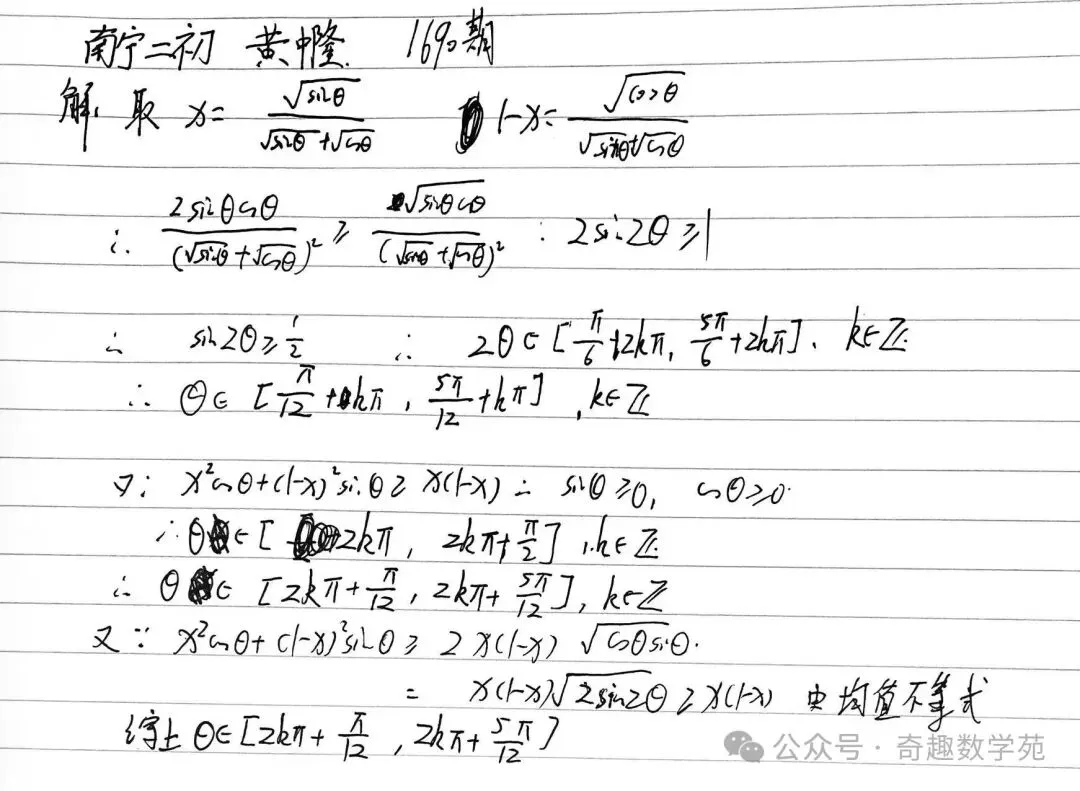 南宁二初 黄中隆 1690期
解: 取 x= √sinθ/(√sinθ+√cosθ) 1-x= √cosθ/(√sinθ+√cosθ)
∴ 2sinθcosθ/(√sinθ+√cosθ)² ≥ √sinθcosθ/(√sinθ+√cosθ)² : 2sin2θ≥1
∴ sin2θ≥1/2 ∴ 2θ∈[π/6+2kπ, 5π/6+2kπ]. k∈Z
∴ θ∈[π/12+kπ, 5π/12+kπ], k∈Z
又: x²cosθ+(1-x)²sinθ≥x(1-x) ∴ sinθ≥0, cosθ≥0.
∴θ∈[2kπ, 2kπ+π/2], k∈Z
∴ θ∈[2kπ+π/12, 2kπ+5π/12], k∈Z
又∵ x²cosθ+(1-x)²sinθ≥2x(1-x)√cosθsinθ.
= x(1-x)√2sin2θ≥x(1-x) 由均值不等式
综上 θ∈[2kπ+π/12, 2kπ+5π/12]
公众号·奇趣数学苑